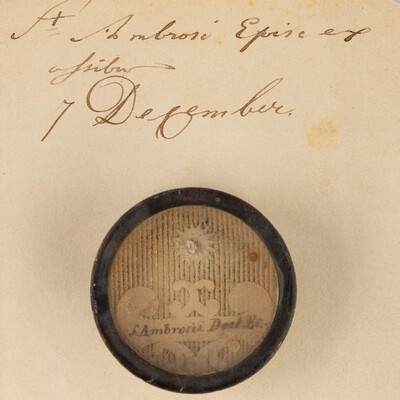 St Ambrosi Episc ex
ossibus
7 December.
S. Ambrosii Doct. Ec.